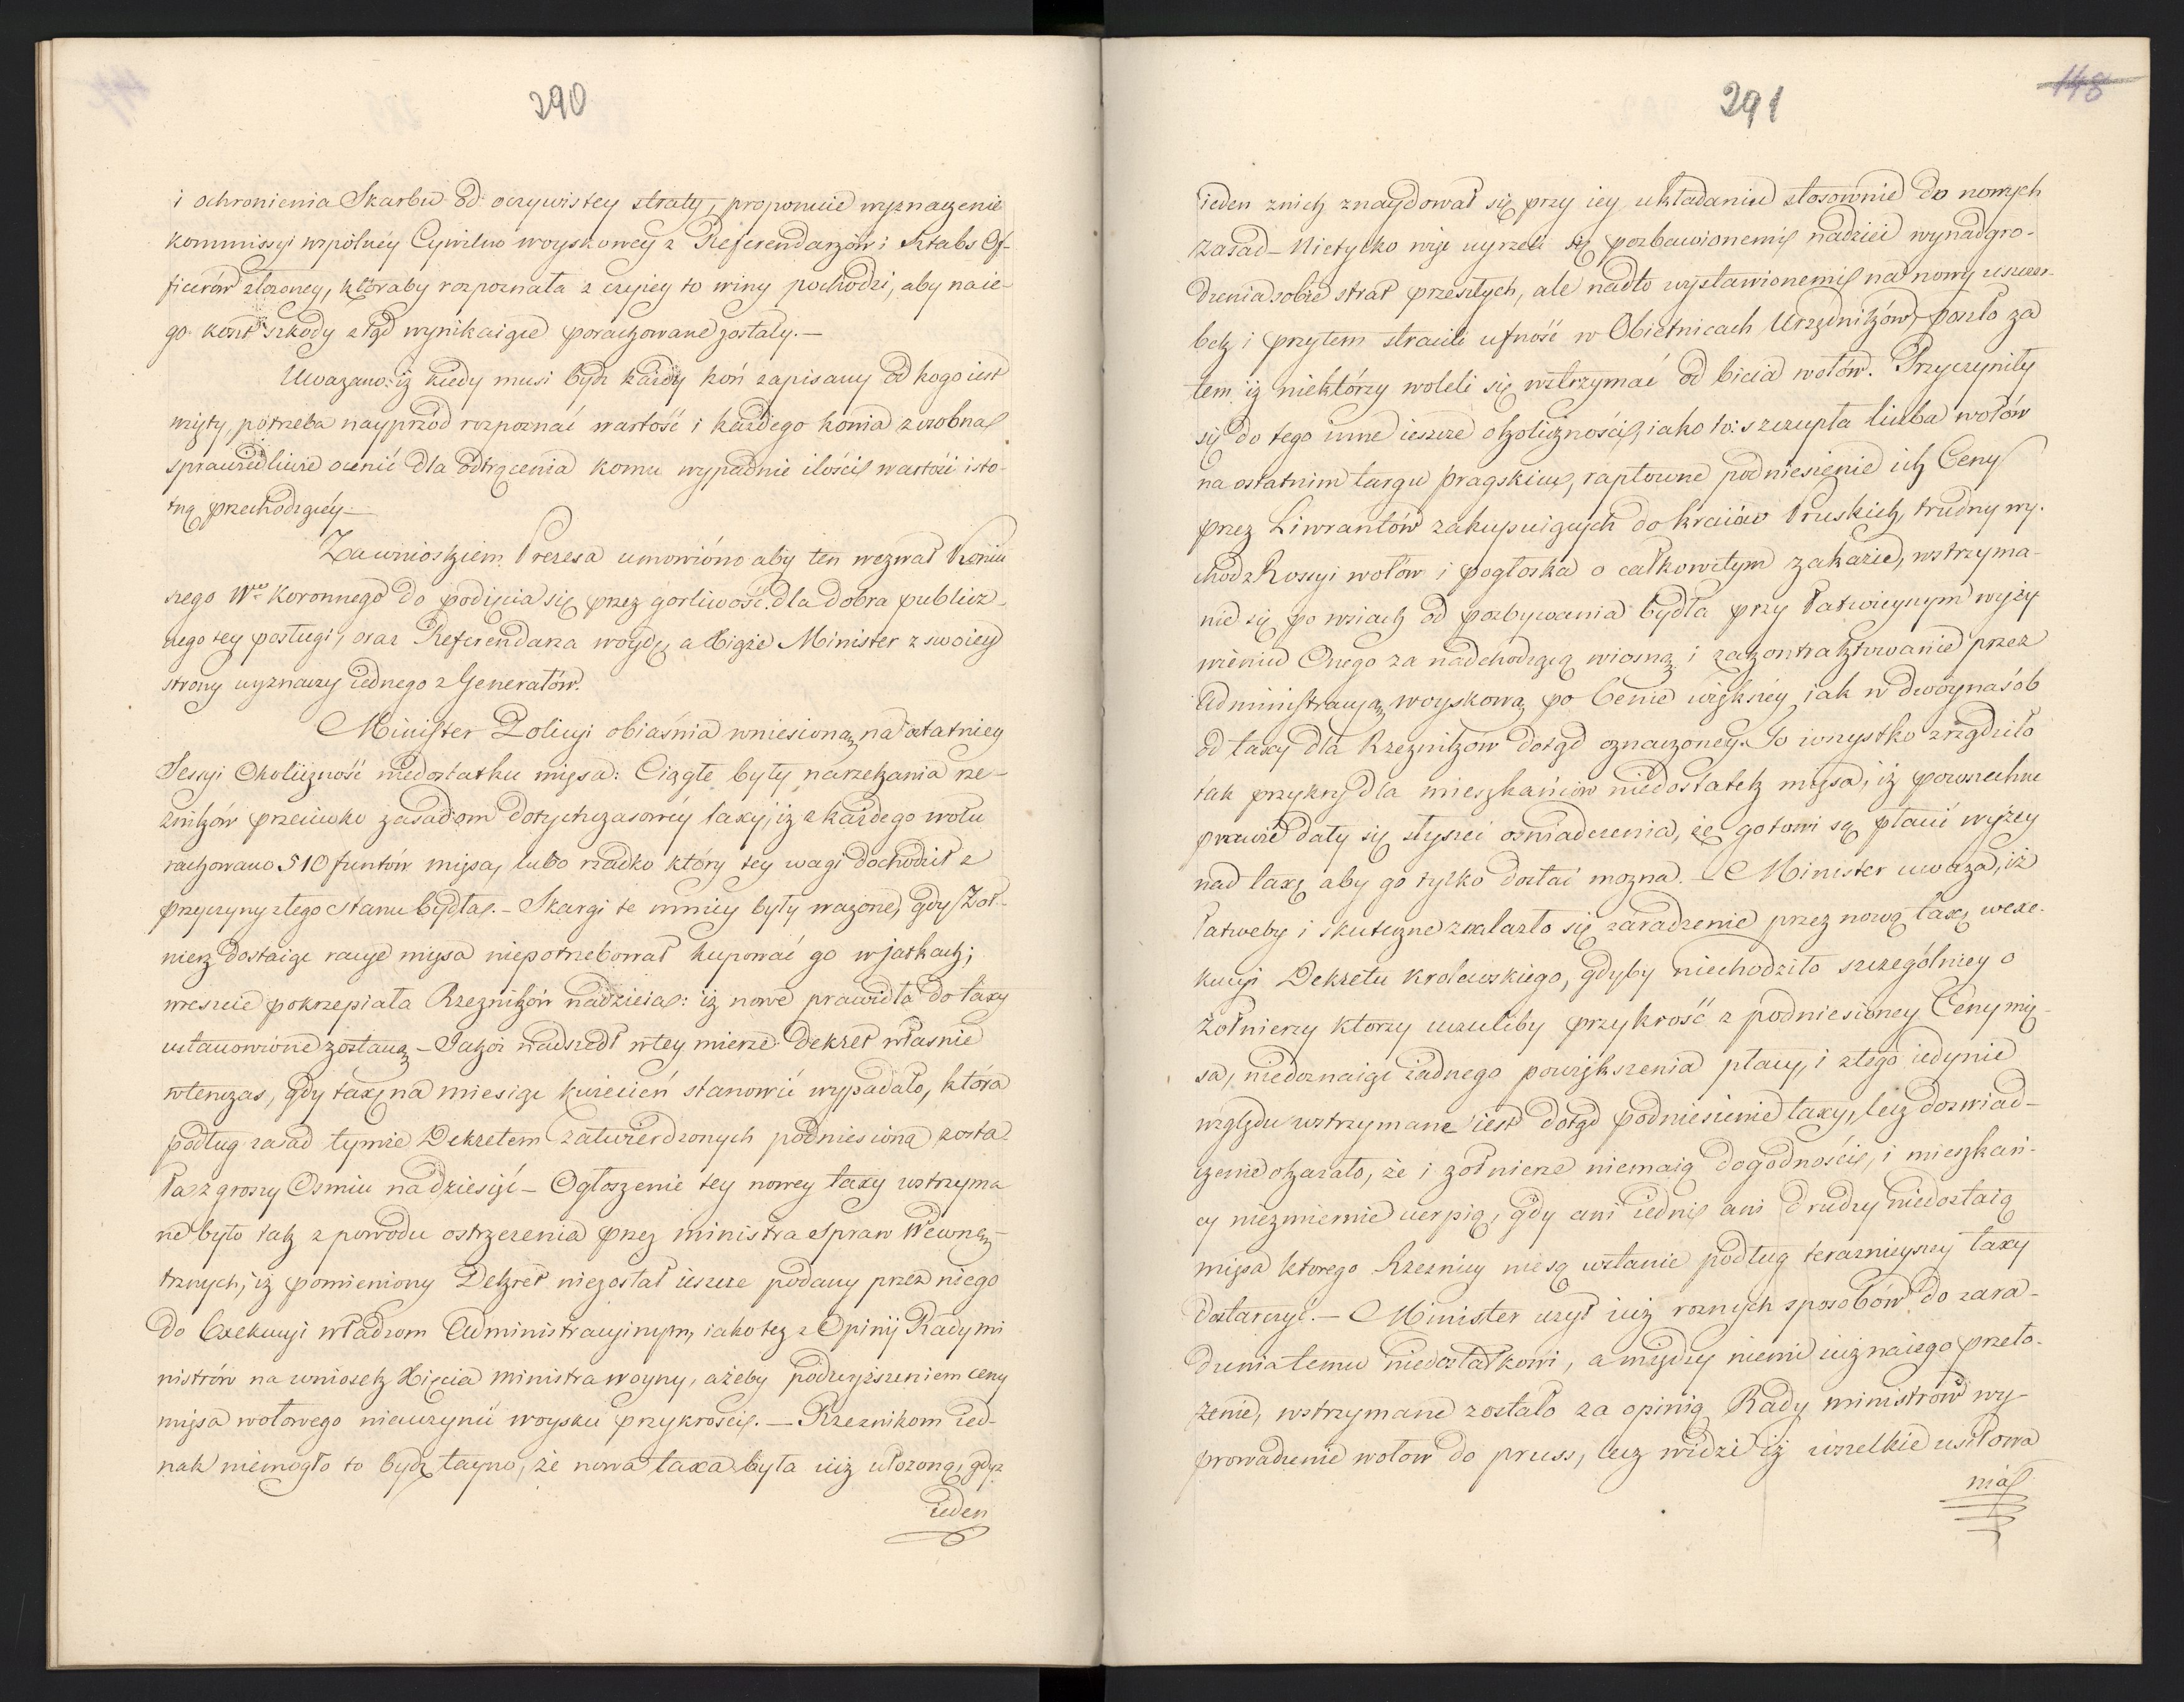 290
i ochronienia Skarbu od oczywistey straty, proponuie wyznaczenie
kommissyi wspolney Cywilno woyskowey z Referendarzów i Sztabs Of-
ficerów złozoney, któraby rozpoznała z czyiey to winy pochodzi, aby na ie-
go koszt szkody ztąd wynikaiące porachowane zostały.—
Uwazano: iz kiedy musi bydz każdy koń zapisany od kogo iest
wzięty, potrzeba nayprzód rozpoznać wartość i każdego konia z osobna
sprawiedliwie ocenić dla odtrącenia komu wypadnie ilości wartość isto-
tną przechodzącéy—
Za wnioskiem Prezesa umowióno aby ten wezwał Koniu
szego Wgo Koronnego do podięcia się przez gorliwość dla dobra publicz-
nego tey posługi, oraz Referendarza woydę, a Xiąże Minister z swoiey
strony wyznaczy iednego z Generałów.
Minister Policyi obiaśnia wniesioną na ostatniey
Sessyi Okoliczność niedostatku mięsa: Ciągłe były narzekania rze-
zników przeciwko zasadom dotychczasowéy taxy, iz z każdego wołu
rachowano 510 funtów mięsa, lubo rzadko który tey wagi dochodził z
przyczyny złego stanu bydła.- Skargi te mniey były ważone, gdy Zoł-
nierz dostaiąc racye mięsa niepotrzebował kupować go w jatkach;
wreszcie pokrzepiała Rzezników nadzieia: iż nowe prawidła do taxy
ustanowione zostaną - Jakoż nadszedł w tey mierze Dekret własnie
wtenczas, gdy taxę na miesiąc kwiecień stanowić wypadało, która
podług zasad tymże Dekretem zatwierdzonych podniesioną zosta
ła z groszy Osmiu na dziesięć - Ogłoszenie tey nowey taxy wstrzyma
ne było tak z powodu ostrzeżenia przez ministra Spraw Wewnę-
trznych, iż pomieniony Dekret niezostał ieszcze podany przez niego
do Exekucyi władzom Administracyinym, iako też z Opinij Rady mi
nistrów na wniosek Xięcia ministra woyny, ażeby podwyższeniem ceny
mięsa wołowego nieuczynić woysku przykrości. — Rzeznikom ied-
nak niemogło to bydz tayno, że nowa taxa była iuż ułożoną, gdyz
ieden
291
148
ieden znich znaydował się przy iey układaniu stosownie do nowych
zasad - Nietylko więc uyrzeli się pozbawionemi nadziei wynadgro-
dzenia sobie strat przeszłych, ale nadto wystawionemi na nowy uszczer-
bek i przytem stracili ufność w Obietnicach Urzędników, poszło za
tem iż niektórzy woleli się wstrzymać od bicia wołów. Przyczyniły
się do tego inne ieszcze okoliczności, iako to: szczupła liczba wołów
na ostatnim targu pragskim, raptowne podniesienie ich Ceny
przez Liwrantów zakupuiących do kraiów Pruskich, trudny wy-
chód z Rossyi wołów i pogłoska o całkowitym zakazie, wstrzyma-
nie się po wsiach od pozbywania bydła przy łatwieyszym wyży
wieniu Onego za nadchodzącą wiosną i zakontraktowanie przez
Administracyą woyskową po Cenie większéy iak w dwóynasób
od taxy dla Rzezników dotąd oznaczoney. To wszystko zrządziło
tak przykry dla mieszkańców niedostatek mięsa, iż powszechne
prawie dały się słyszeć oświadczenia, że gotowi są płacić wyżey
nad taxę aby go tylko dostać mozna. - Minister uważa, iż
łatweby i skuteczne znalazło się zaradzenie przez nową taxę w exe-
kucyi Dekretu krolewskiego, gdyby niechodziło szczególniey o
żołnierzy ktorzy uczuliby przykrość z podniesioney Ceny mię-
sa, niedoznaiąc żadnego powiększenia płacy, i ztego iedynie
względu wstrzymane iest dotąd podniesienie taxy, lecz doświad-
czenie okazało, że i żołnierze niemaią dogodności, i mieszkań-
cy niezmiernie cierpią, gdy ani iedni ani drudzy niedostaią
mięsa ktorego Rzeznicy niesą wstanie podług teraznieyszey taxy
dostarczyć. - Minister użył iuż roznych sposobów do zara-
dzenia temu niedostatkowi, a między niemi iuż na iego przeło-
żenie, wstrzymane zostało za opinią Rady ministrów wy-
prowadzenie wołow do pruss, lecz widzi iż wszelkie usiłowa
nia